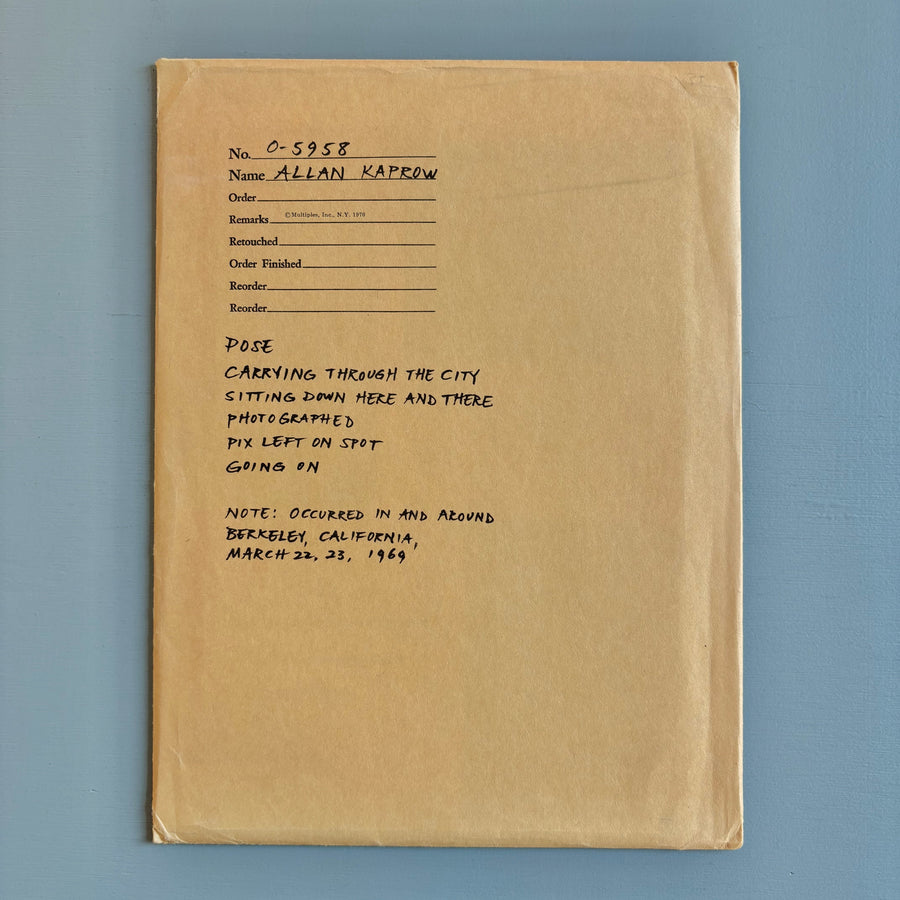 No. 0-5958
Name ALLAN KAPROW
Order
Remarks © Multiples, Inc., N.Y. 1970
Retouched
Order Finished
Reorder
Reorder
POSE
CARRYING THROUGH THE CITY
SITTING DOWN HERE AND THERE
PHOTOGRAPHED
PIX LEFT ON SPOT
GOING ON
NOTE: OCCURRED IN AND AROUND
BERKELEY, CALIFORNIA,
MARCH 22, 23, 1969